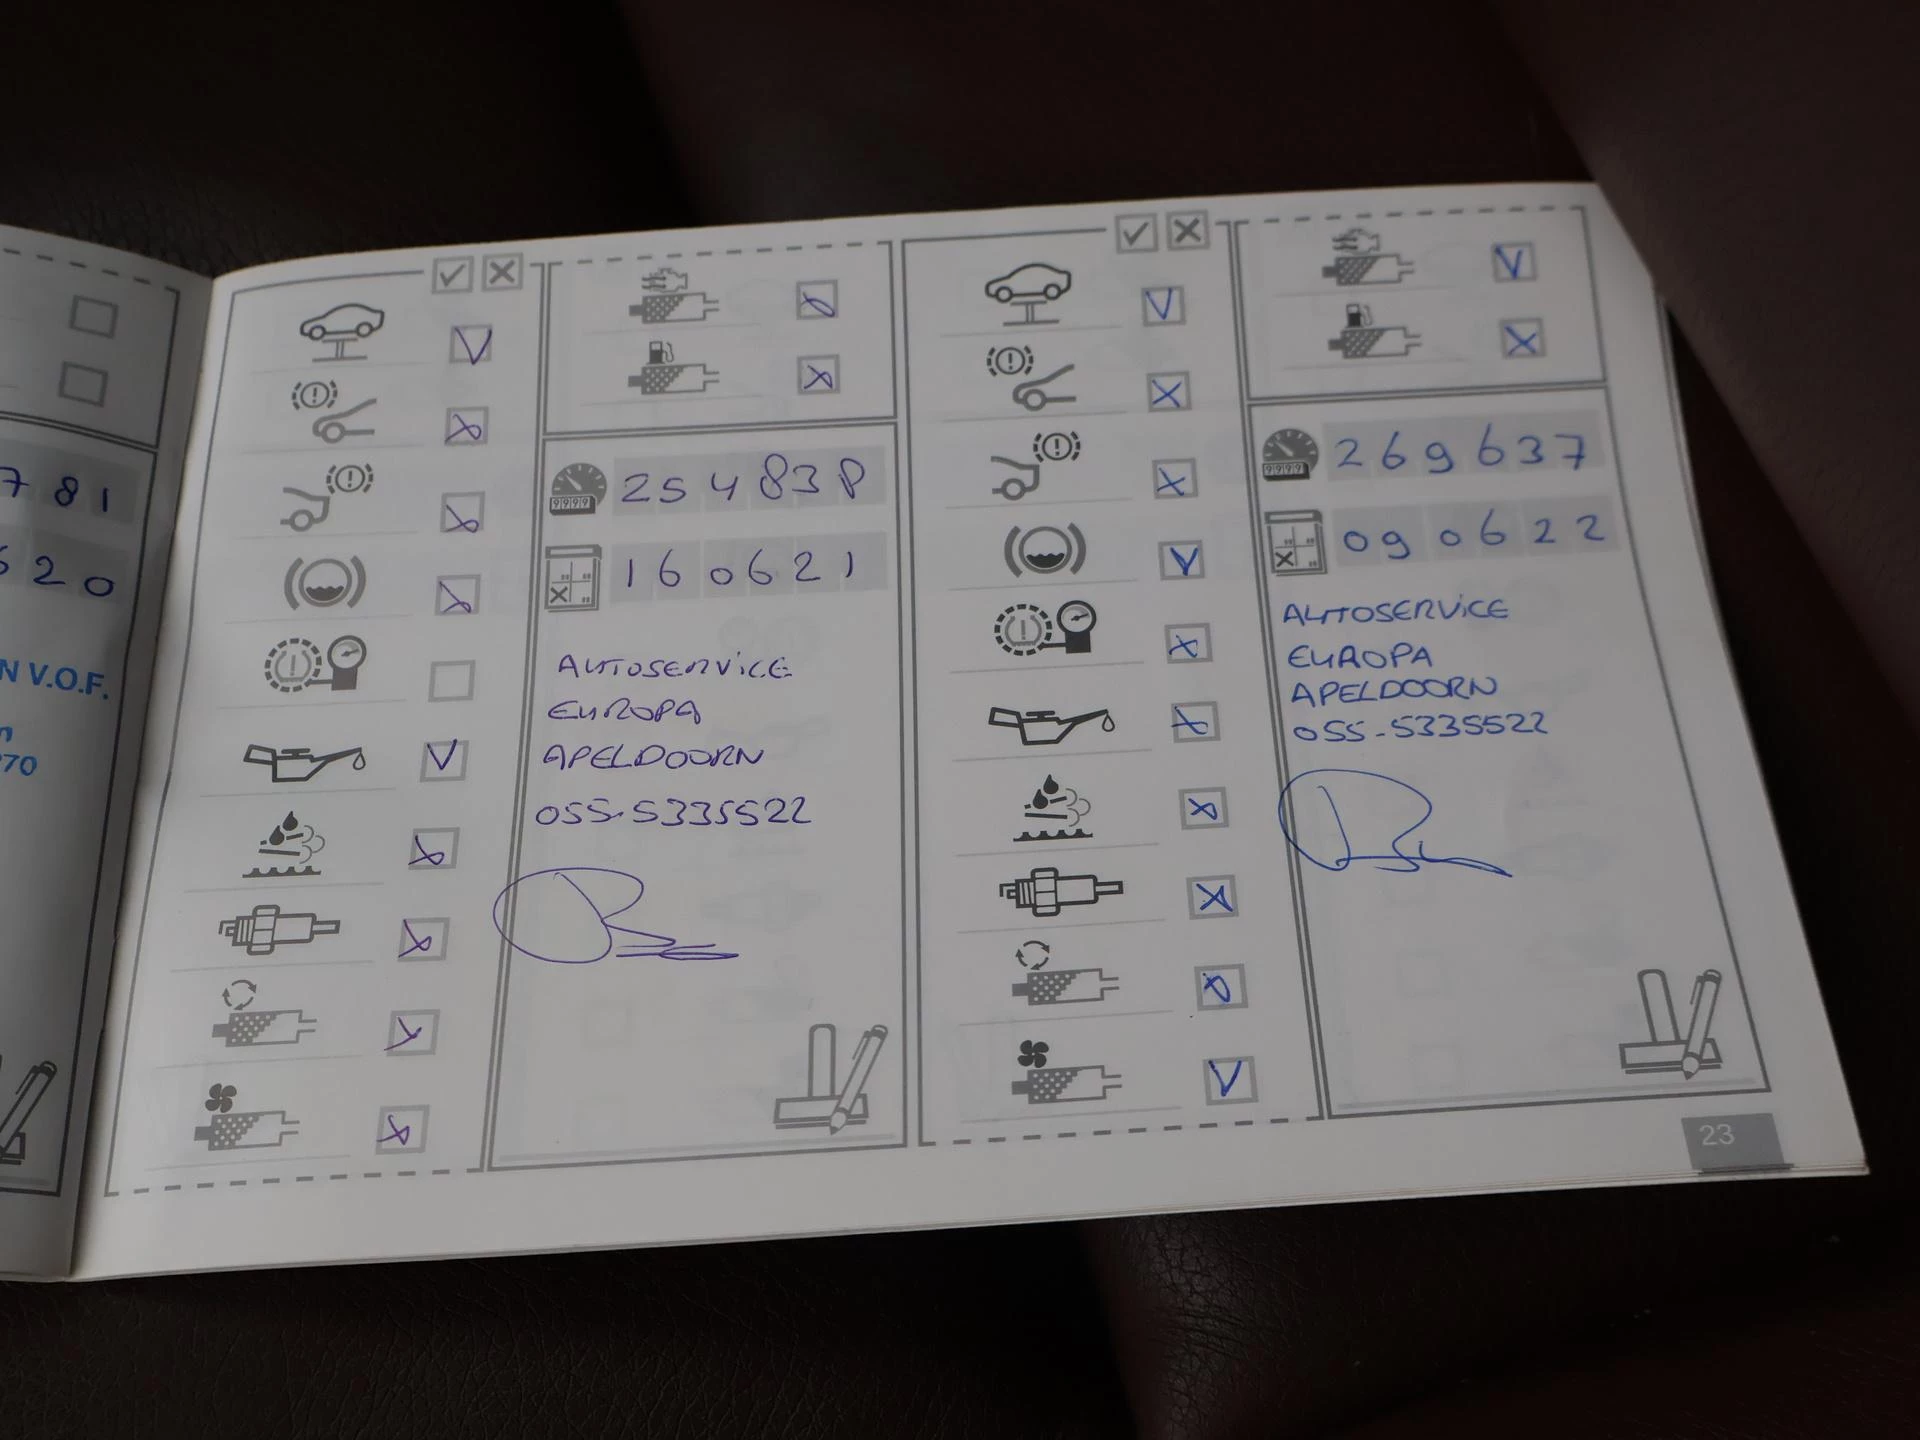 781
620
N V.O.F.
n
70
9999
254838
160621
AUTOSERVICE
EUROPA
APELDOORN
055-5335522
9999
269637
090622
AUTOSERVICE
EUROPA
APELDOORN
055-5335522
23